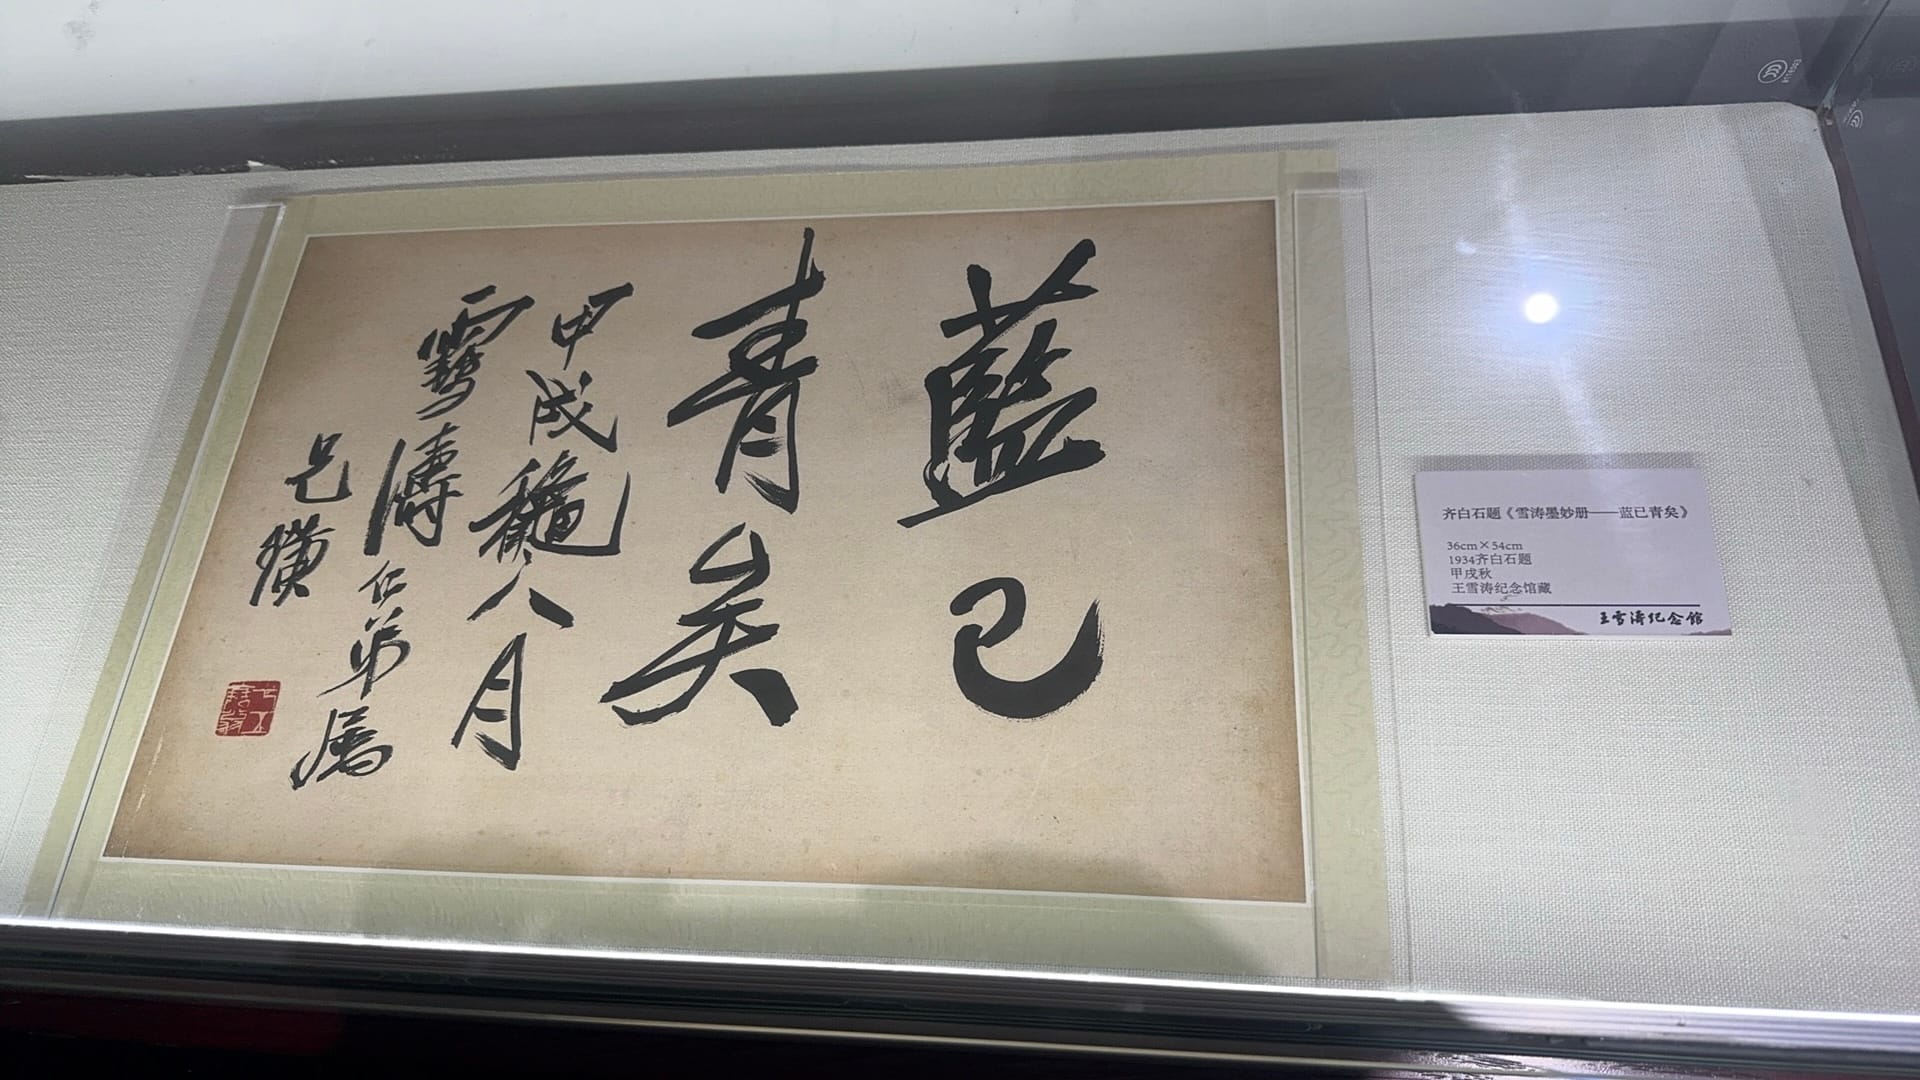 藍已
青矣
甲戌龝八月
雪濤仁弟屬
兄璜
齐白石题《雪涛墨妙册——蓝已青矣》
36cm×54cm
1934齐白石题
甲戌秋
王雪涛纪念馆藏
王雪濤纪念馆